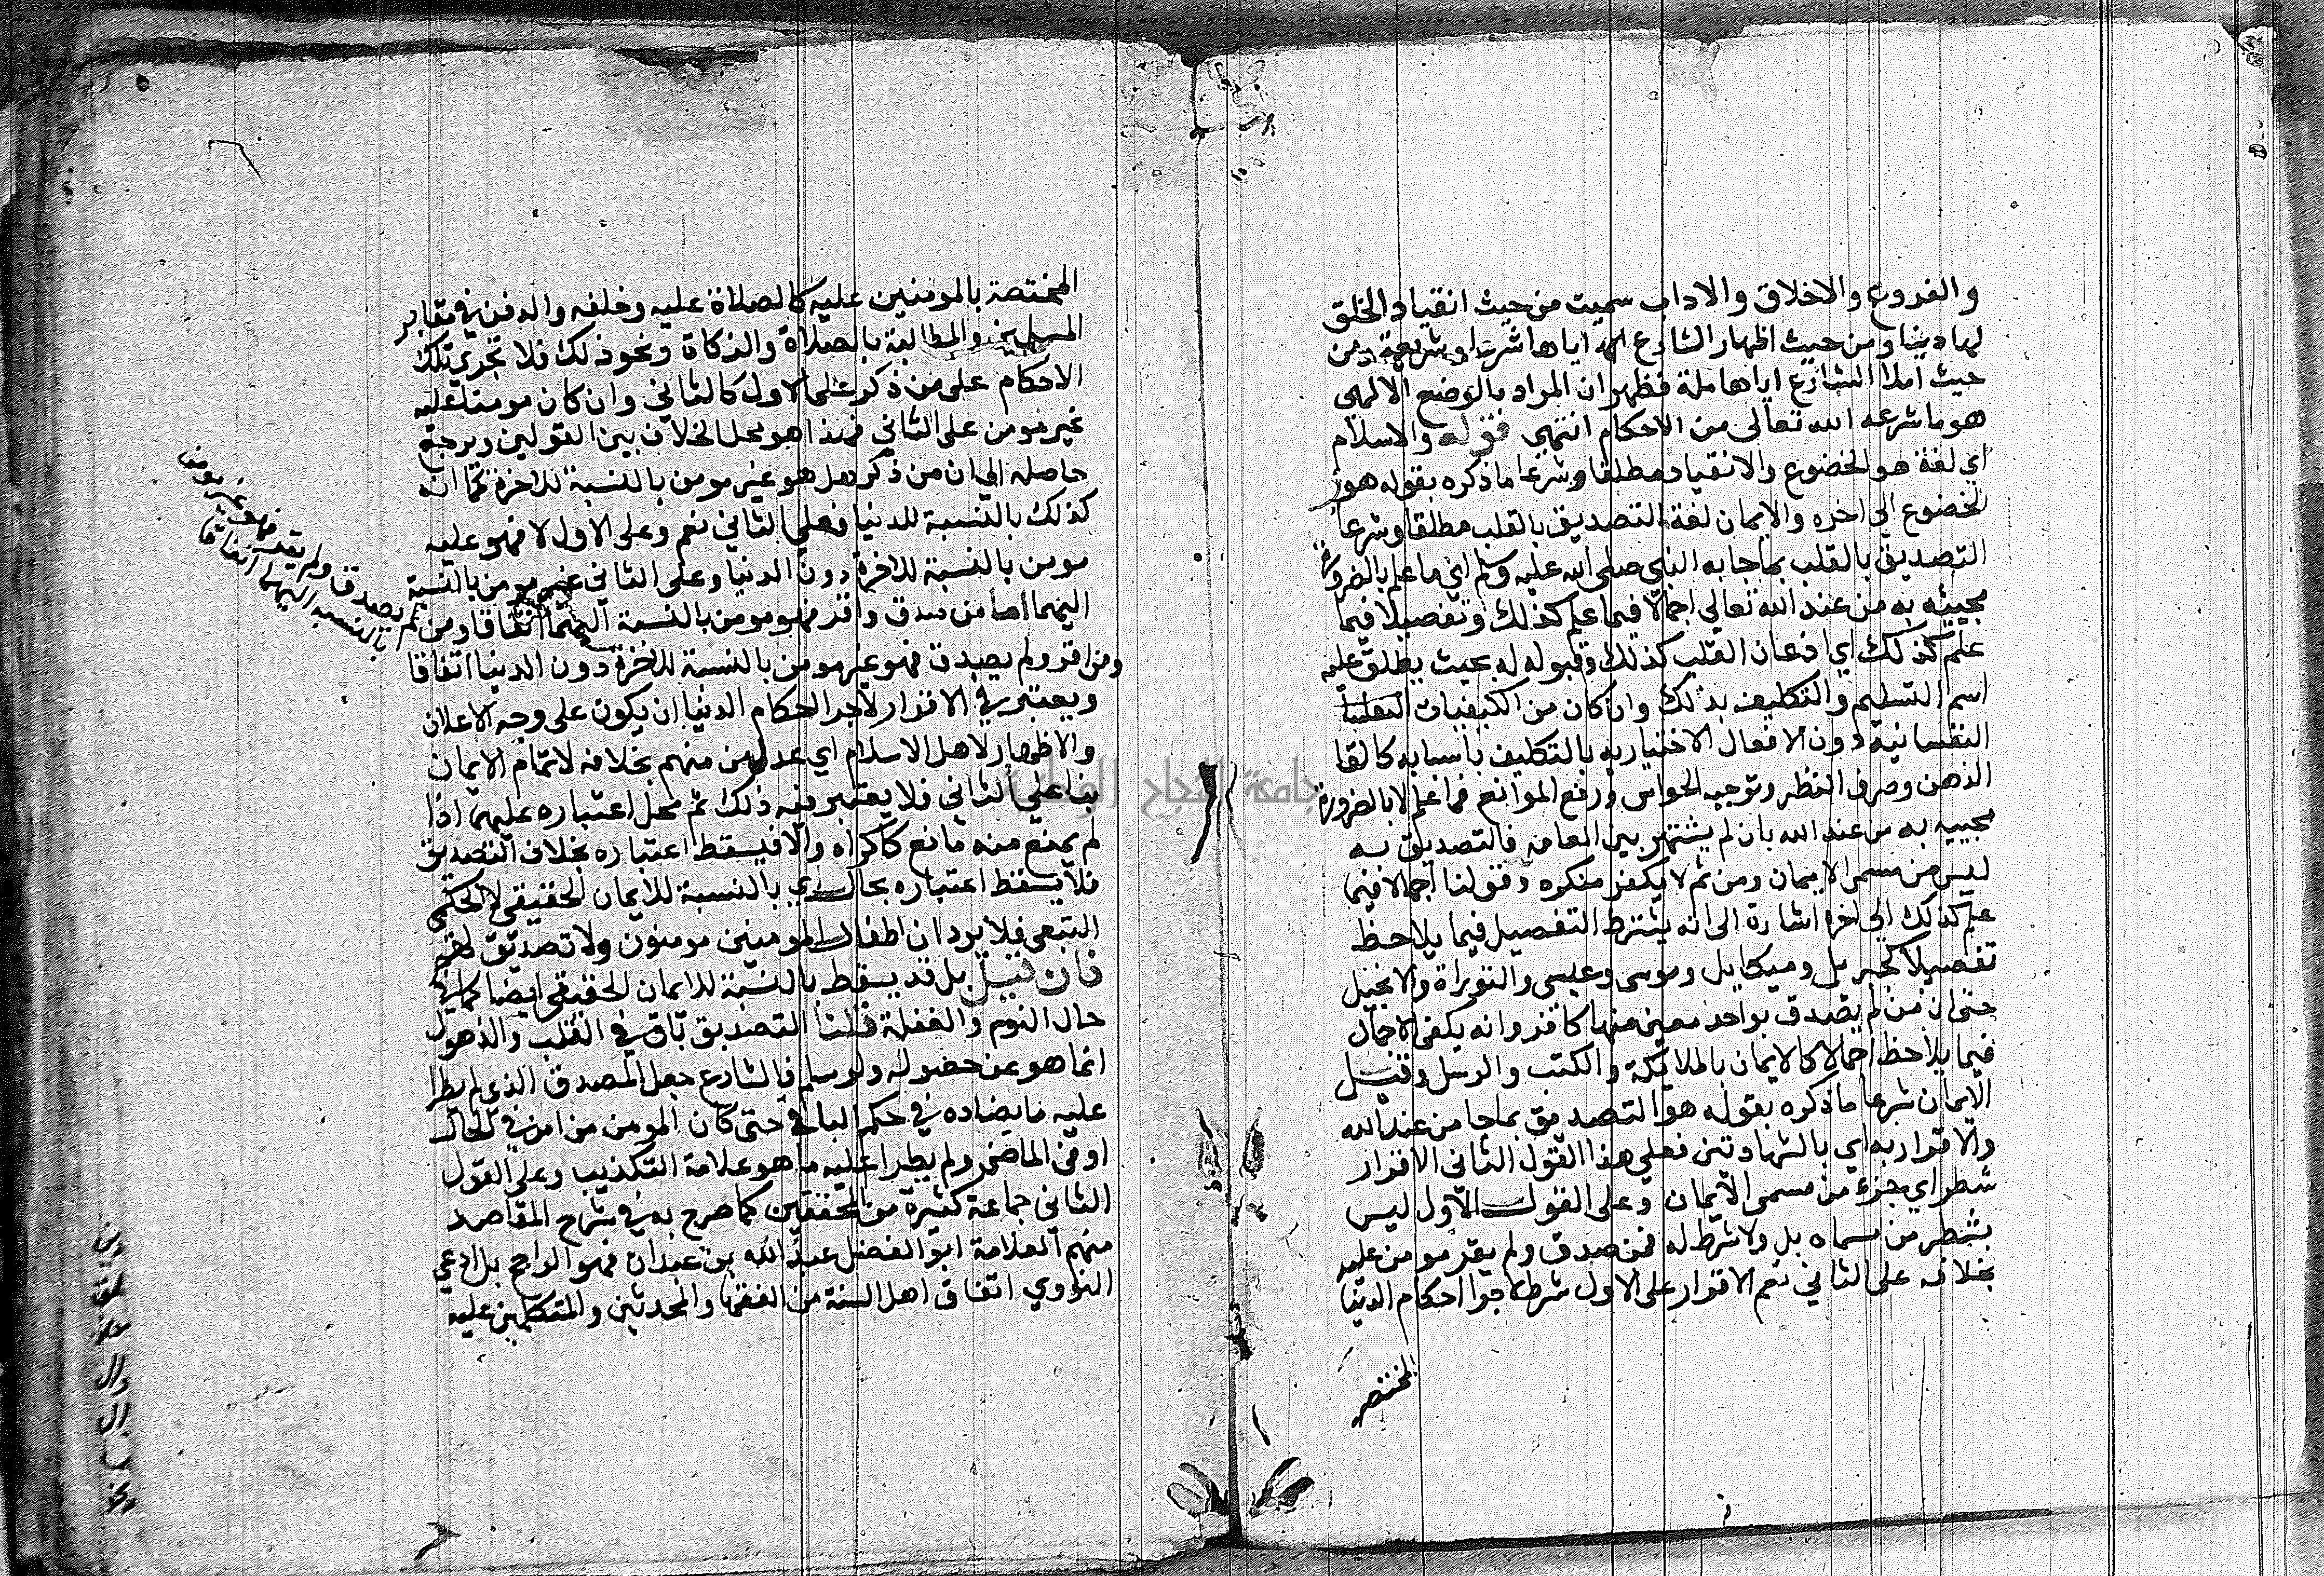 والفروع والاخلاق والاداب سميت من حيث انقياد الخلق
لها دينا ومن حيث اظهار الشارع اياها شرعا وشريعة ومن
حيث املا الشارع اياها ملة فظهر ان المراد بالوضع الالهي
هو ما شرعه الله تعالى من الاحكام انتهى قوله والاسلام
اي لغة هو الخضوع والانقياد مطلقا وشرعا ما ذكره بقوله هو
الخضوع الى اخره والايمان لغة التصديق بالقلب مطلقا وشرعا
التصديق بالقلب بما جا به النبي صلى الله عليه وسلم اي ما علم بالضرورة
مجييه به من عند الله تعالى اجمالا فيما علم كذلك وتفصيلا فيما
علم كذلك اي اذعان القلب كذلك وقبوله له بحيث يطلق عليه
اسم التسليم والتكليف بذلك وان كان من الكيفيات
النفسانية دون الافعال الاختياريه بالتكليف باسبابه كالقا
الذهن وصرف النظر وتوجيه الحواس ورفع الموانع فما علم لا بالضرورة
مجييه به من عند الله بان لم يشتهر بين العامه فالتصديق به
ليس من مسمى الايمان ومن ثم لا يكفر منكره وقولنا اجمالا فيما
علم كذلك الى اخره اشارة الى انه يشترط التفصيل فيما يلاحظ
تفصيلا كجبريل وميكايل وموسى وعيسى والتوراة والانجيل
حتى ان من لم يصدق بواحد معين منها كافر وانه يكفي الاجمال
فيما يلاحظ اجمالا كالايمان بالملائكة والكتب والرسل وقيل
الايمان شرعا ما ذكره بقوله هو التصديق بما جا من عند الله
والاقرار به اي بالشهادتين فعلى هذا القول الثاني الاقرار
شطر اي جزء من مسمى الايمان وعلى القول الاول ليس
بشطر من مسماه بل ولا شرط له فمن صدق ولم يقر مومن عليه
بخلافه على الثاني نعم الاقرار على الاول شرط لاجرا احكام الدنيا
المختصة
المختصة بالمومنين عليه كالصلاة عليه وخلفه والدفن في مقابر
المسلمين والمطالبة بالصلاة والزكاة ونحو ذلك فلا تجري تلك
الاحكام على من ذكر على الاول كالثاني وان كان مومنا عليه
غير مومن على الثاني فهذا هو محل الخلاف بين القولين ويرجع
حاصله الى ان من ذكر هل هو غير مومن بالنسبة للاخرة كما انه
كذلك بالنسبة للدنيا فعلى الثاني نعم وعلى الاول لا فهو عليه
مومن بالنسبة للاخرة دون الدنيا وعلى الثاني غير مومن بالنسبة
اليهما اما من صدق واقر فهو مومن بالنسبة اليهما اتفاقا ومن
لم يصدق ولم يقر فهو غير مومن
بالنسبه اليهما اتفاقا
ومن اقر ولم يصدق فهو غير مومن بالنسبة للاخرة دون الدنيا اتفاقا
ويعتبر في الاقرار لاجر احكام الدنيا ان يكون على وجه الاعلان
والاظهار لاهل الاسلام اي عدلين منهم بخلافه لاتمام الايمان
بنا على الثاني فلا يعتبر فيه ذلك ثم محل اعتباره عليهما اذا
لم يمنع منه مانع كاكراه والا فيسقط اعتباره بخلاف التصديق
فلا يسقط اعتباره بحال اي بالنسبة للايمان الحقيقي لا الحكمي
التبعي فلا يرد ان اطفال المومنين مومنون ولا تصديق لهم
فان قيل بل قد يسقط بالنسبة للايمان الحقيقي ايضا كما في
حال النوم والغفلة قلنا التصديق باق في القلب والذهول
انما هو عن حضوله ولو سلم فالشارع جعل المصدق الذي لم يطرا
عليه ما يضاده في حكم الباقي حتى كان المومن من امن في الحال
او في الماضي ولم يطرا عليه ما هو علامة التكذيب وعلى القول
الثاني جماعة كثيرة من المحققين كما صرح به في شرح المقاصد
منهم العلامة ابو الفضل عبد الله بن عبدان فهو الراجح بل ادعى
النووي اتفاق اهل السنة من الفقها والمحدثين والمتكلمين عليه
جامعة النجاح الوطنية